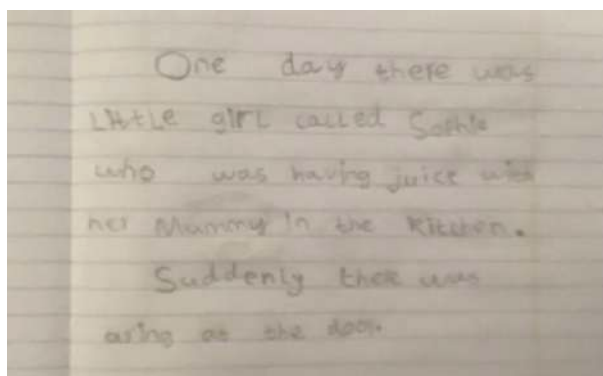 One day there was
LittLe girL caLLed Sophie
who was having juice with
her Mummy in the Kitchen.
Suddenly there was
aring at the door.